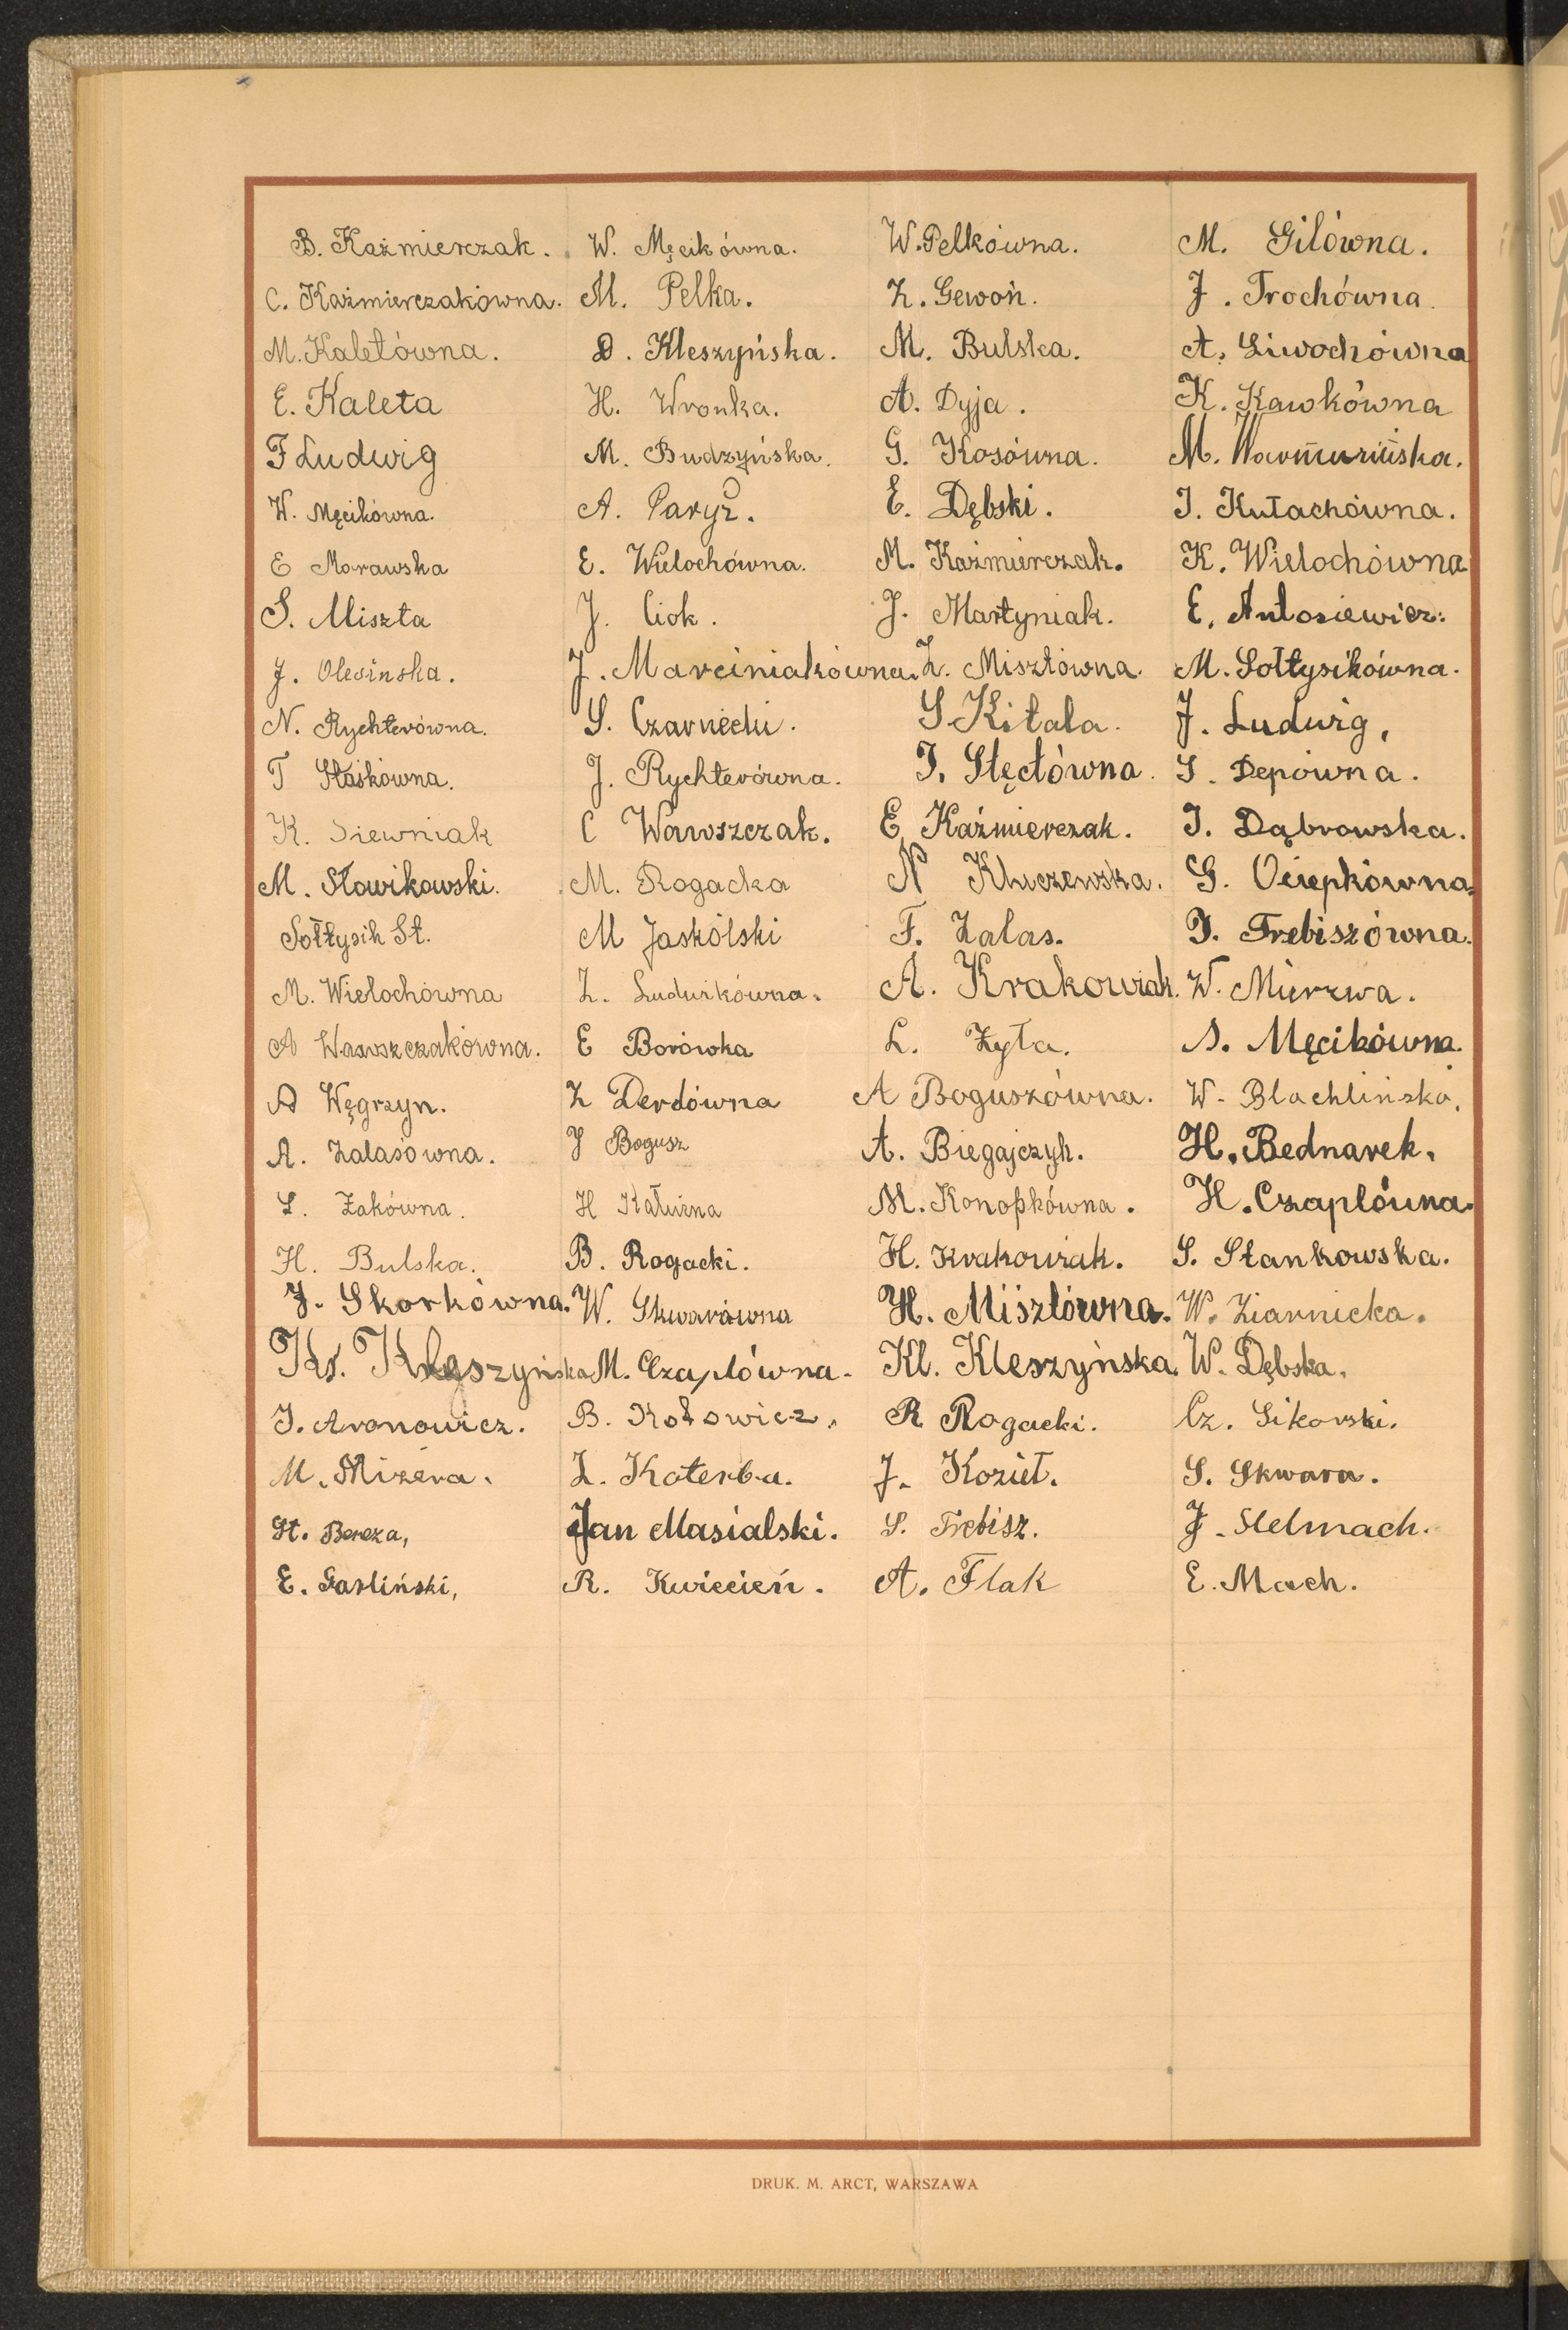 B. Kaźmierczak. W. Męcikówna. W. Pelkówna. M. Gilówna.
C. Kaźmierczakówna. M. Pelka. Z. Gewoń. J. Trochówna.
M. Kaletówna. D. Kleszyńska. M. Bulska. A. Siwochówna
E. Kaleta H. Wronka. A. Dyja. K. Kawkówna
F Ludwig M. Budzyńska. G. Kosówna. M.
W. Męcikówna. A. Paryż. E. Dębski. I. Kułachówna.
E Morawska E. Wielochówna. M. Kaźmierczak. K. Wielochówna
S. Miszta J. Ciok. J. Martyniak. E. Antosiewicz.
J. Olesinska. J. Marciniakówna. Z. Misztówna. M. Sołtysikówna.
N. Rychterówna. S. Czarnecki. S Kitala. J. Ludwig,
T Staśkówna. J. Rychterówna. I. Stęctówna. S. Depówna.
K. Siewniak C Wawszczak. E. Kaźmierczak. I. Dąbrowska.
M. Słowikowski. M. Rogacka N Kluczewska. G. Ociepkówna.
Sołtysik St. M Jaskólski F. Zalas. I. Trebiszówna.
M. Wielochówna Z. Ludwikówna. A. Krakowiak. W. Mierzwa.
A Wawszczakówna. E Borówka L. Zyła. S. Męcikówna.
A Węgrzyn. Z Derdówna A Boguszówna. W. Blachlińska.
A. Zalasówna. J Bogusz A. Biegajczyk. H. Bednarek.
S. Żakówna. H Kałuzna M. Konopkówna. H. Czaplówna.
H. Bulska. B. Rogacki. H. Krakowiak. S. Stankowska.
J. Skorkówna. W. Skwarówna H. Misztówna. W. Ziarnicka.
Kr. Kleszyńska M. Czaplówna. Kl. Kleszyńska. W. Dębska.
I. Aronowicz. B. Kotowicz. R Rogacki. Cz. Sikorski.
M. Mizera. Z. Katerba. J. Kozieł. S. Skwara.
St. Bereza, Jan Masialski. S. Trebisz. J. Stelmach.
E. Gasliński, R. Kwiecień. A. Flak E. Mach.
DRUK. M. ARCT, WARSZAWA